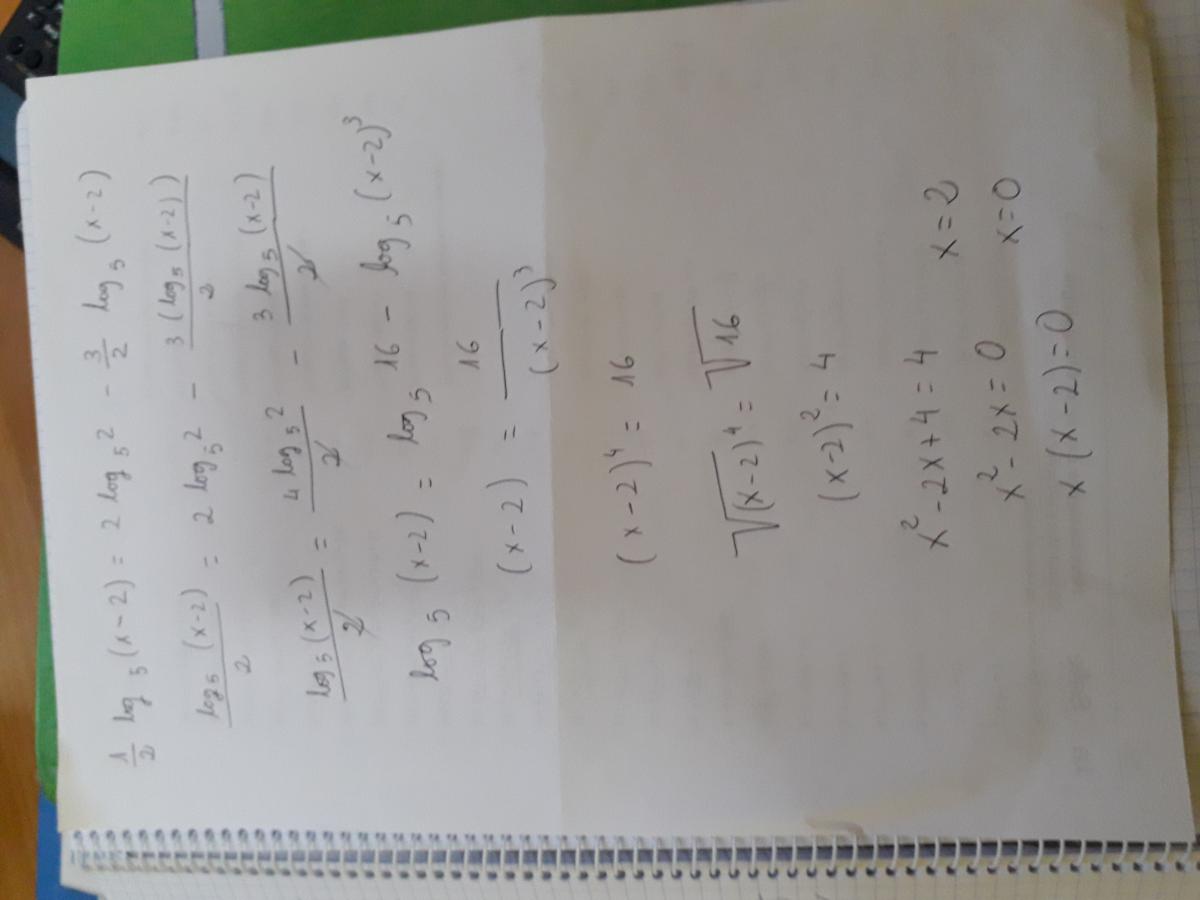 1/2 log₅(x-2) = 2 log₅2 - 3/2 log₅(x-2)
log₅(x-2)/2 = 2 log₅2 - 3(log₅(x-2))/2
log₅(x-2)/2 = 4 log₅2/2 - 3 log₅(x-2)/2
log₅(x-2) = log₅16 - log₅(x-2)³
(x-2) = 16/(x-2)³
(x-2)⁴ = 16
√(x-2)⁴ = √16
(x-2)² = 4
x² - 2x + 4 = 4 x = 2
x² - 2x = 0 x = 0
x(x-2) = 0